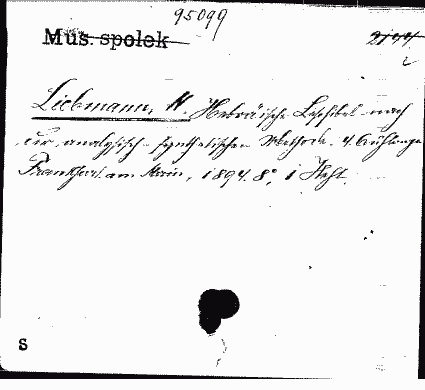 95099
Mus. spolek
Liebmann, H. Hebräische Lesefibel nach
der analytisch-synthetischen Methode. 4. Auflage
Frankfurt am Main, 1894. 8°, 1 Heft.
S